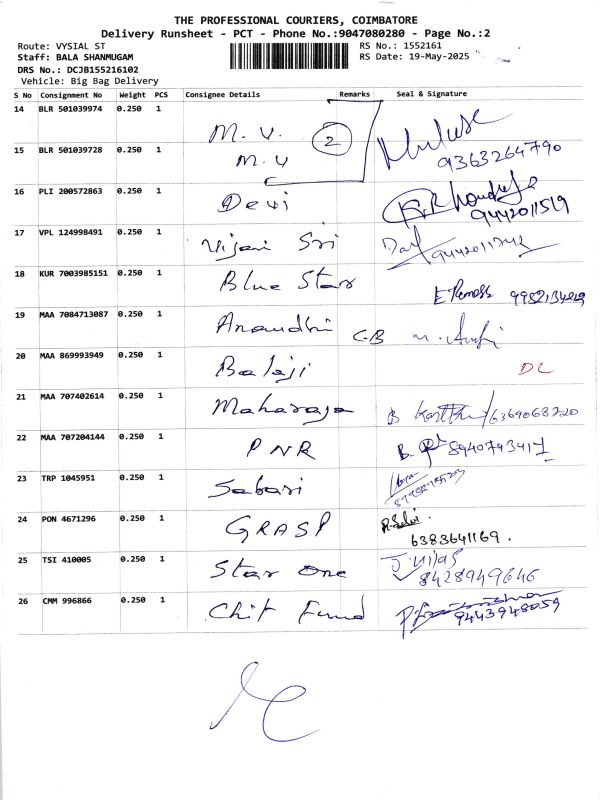 THE PROFESSIONAL COURIERS, COIMBATORE
Delivery Runsheet - PCT - Phone No.:9047080280 - Page No.:2
Route: VYSIAL ST RS No.: 1552161
Staff: BALA SHANMUGAM RS Date: 19-May-2025
DRS No.: DCJB155216102
Vehicle: Big Bag Delivery
S No Consignment No Weight PCS Consignee Details Remarks Seal & Signature
14 BLR 501039974 0.250 1 M. V. 2
15 BLR 501039728 0.250 1 M. V 9363264790
16 PLI 200572863 0.250 1 Devi 9442011519
17 VPL 124998491 0.250 1 Vijai Sri
18 KUR 7003985151 0.250 1 Blue Star
19 MAA 7084713087 0.250 1 Anandhi C-B
20 MAA 869993949 0.250 1 Balaji DL
21 MAA 707402614 0.250 1 Maharaja 6369068220
22 MAA 707204144 0.250 1 PNR
23 TRP 1045951 0.250 1 Sabari
24 PON 4671296 0.250 1 GRASP 6383641169.
25 TSI 410005 0.250 1 Star One 8428949646
26 CMM 996866 0.250 1 Chit Fund 9443948059